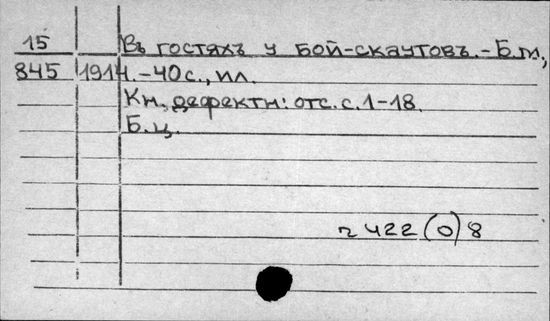 15 Въ гостяхъ у бой-скаутовъ.-Б.м.,
845 1914.-40с., ил.
Кн. дефектн: отс. с. 1-18.
Б.ц.
г 422 (0) 8